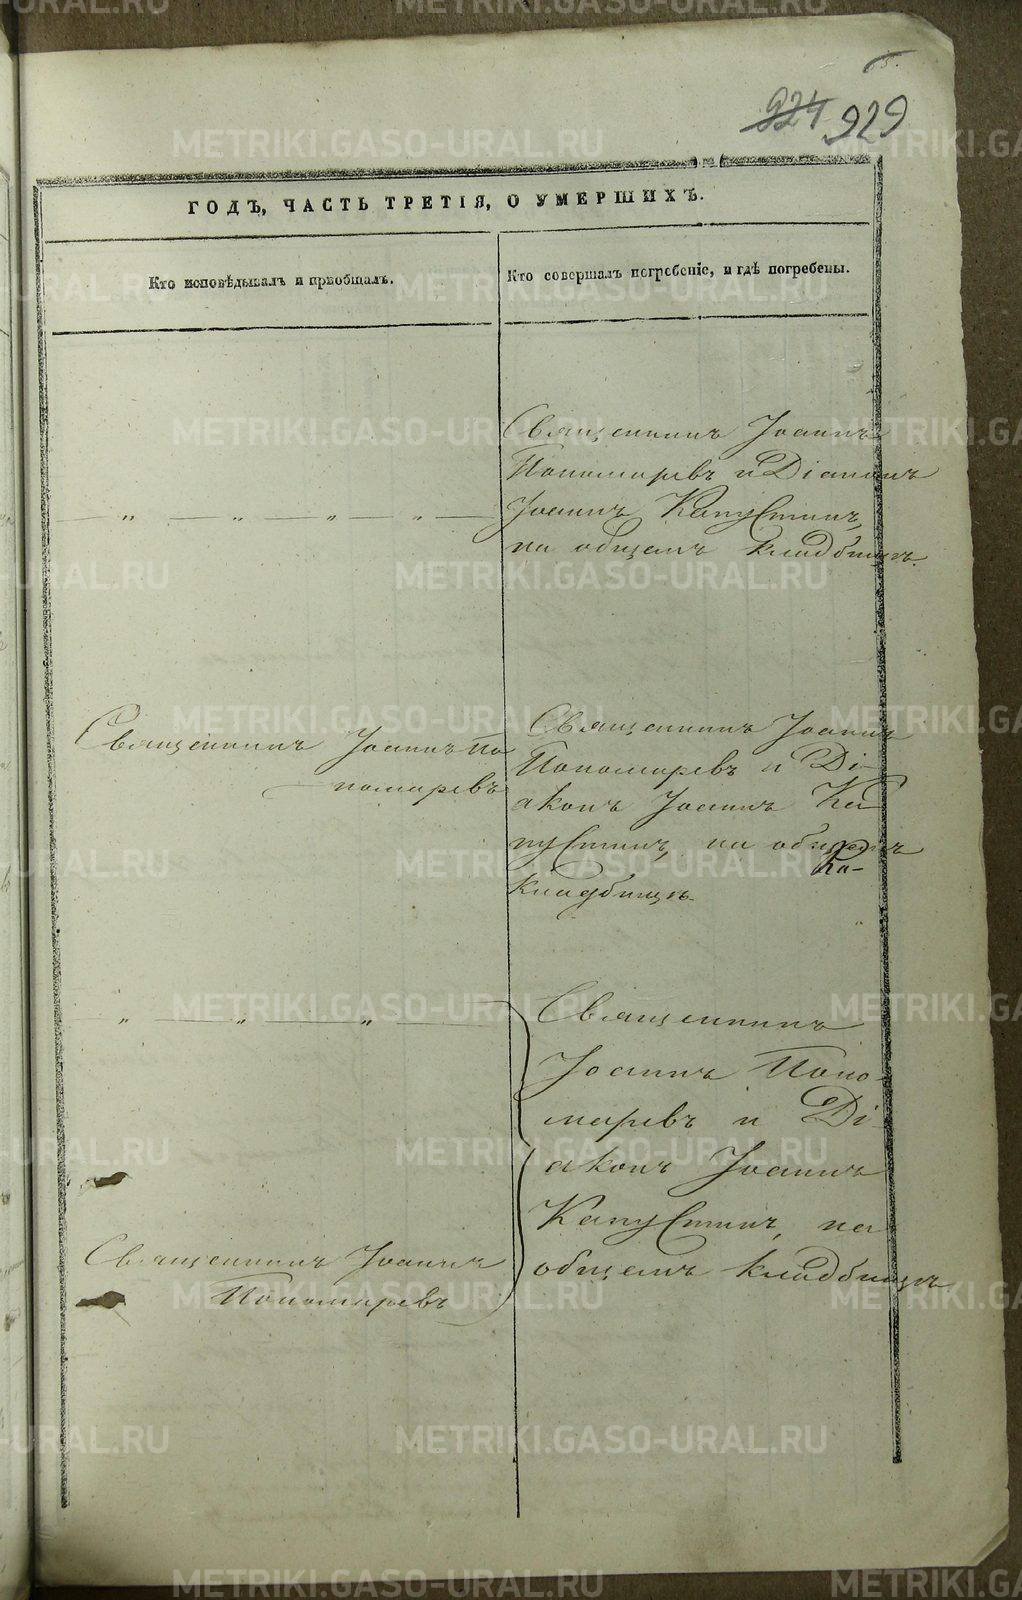 65.
924 929
ГОДЪ, ЧАСТЬ ТРЕТІЯ, О УМЕРШИХЪ.
Кто исповѣдывалъ и пріобщалъ.
Кто совершалъ погребеніе, и гдѣ погребены.
Священникъ Іоаннъ
Пономаревъ и Діаконъ
Іоаннъ Капустинъ,
на общемъ кладбищѣ.
— „ — „ — „ — „ —
Священникъ Іоаннъ По
номаревъ
Священникъ Іоаннъ
Пономаревъ и Ді-
аконъ Іоаннъ Ка
пустинъ, на общемъ
Ка-
кладбищѣ.
— „ — „ — „ —
Священникъ
Іоаннъ Поно-
маревъ и Ді-
аконъ Іоаннъ
Капустинъ, на
общемъ кладбищѣ
Священникъ Іоаннъ
Пономаревъ
METRIKI.GASO-URAL.RU